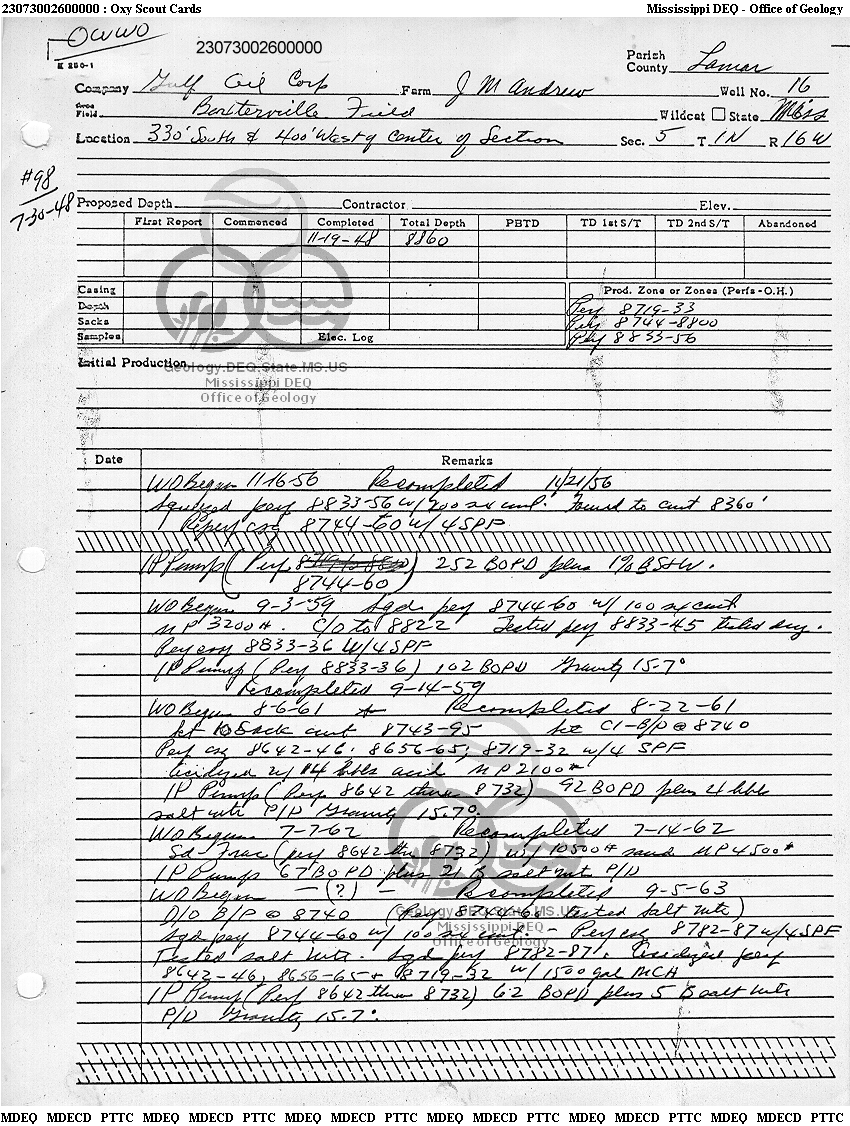 23073002600000 : Oxy Scout Cards Mississippi DEQ - Office of Geology
OWWO
23073002600000
K 250-1
Parish
County Lamar
Company Gulf Oil Corp Farm J M Andrew Well No. 16
Area
Field Baxterville Field Wildcat State Miss
Location 330' South & 400' West of Center of Section Sec. 5 T 1N R 16W
#98
7-30-48
Proposed Depth Contractor Elev.
First Report Commenced Completed Total Depth PBTD TD 1st S/T TD 2nd S/T Abandoned
11-19-48 8860
Casing Prod. Zone or Zones (Perfs-O.H.)
Depth Perf 8719-33
Sacks Perf 8744-8800
Samples Elec. Log Perf 8833-56
Initial Production
Geology.DEQ.State.MS.US
Mississippi DEQ
Office of Geology
Date Remarks
WO Began 11-16-56 Recompleted 11/21/56
Squeezed perf 8833-56 w/200 sx cmt. Found to cmt 8360'
Reperf csg 8744-60 w/4 SPF
IP Pump (Perf 8719 to 8800) 252 BOPD plus 1% BS+W.
8744-60
WO Began 9-3-59 Sqd perf 8744-60 w/100 sx cmt
MP 3200#. C/O to 8822 Tested perf 8833-45 tested dry.
Perf csg 8833-36 W/4 SPF
IP Pump (Perf 8833-36) 102 BOPD Gravity 15.7°
Recompleted 9-14-59
WO Began 8-6-61 Recompleted 8-22-61
10 Sack cmt 8743-95 Set CI-B/P @ 8740
Perf csg 8642-46. 8656-65, 8719-32 w/4 SPF
Acidized w/ 14 bbls acid MP 2100#
IP Pump (Perf 8642 thru 8732) 92 BOPD plus 4 bbls
salt wtr P/D Gravity 15.7°.
WO Began 7-7-62 Recompleted 7-14-62
Sd-Frac (perf 8642 thru 8732) w/ 10500# sand MP 4500#
IP Pump 67 BOPD plus 21 B salt wt P/D
WO Began - (?) - Recompleted 9-5-63
D/O B/P @ 8740 (Perf 8744-60 tested Salt wtr)
Geology.DEQ.State.MS.US
Mississippi DEQ
Office of Geology
Sqd perf 8744-60 w/ 100 sx cmt. - Perf csg 8782-87 w/4 SPF
Tested salt wtr. Sqd perf 8782-87. Acidized perf
8642-46, 8656-65 + 8719-32 w/1500 gal MCA
IP Pump (Perf 8642 thru 8732) 62 BOPD plus 5 B salt wtr
P/D Gravity 15.7°.
MDEQ MDECD PTTC MDEQ MDECD PTTC MDEQ MDECD PTTC MDEQ MDECD PTTC MDEQ MDECD PTTC MDEQ MDECD PTTC